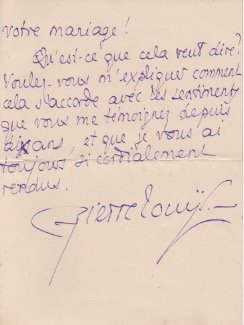 votre mariage !
Qu'est-ce que cela veut dire?
Voulez-vous m'expliquer comment
cela s'accorde avec les sentiments
que vous me témoignez depuis
dix ans, et que je vous ai
toujours si cordialement
rendus.
Pierre Louÿs